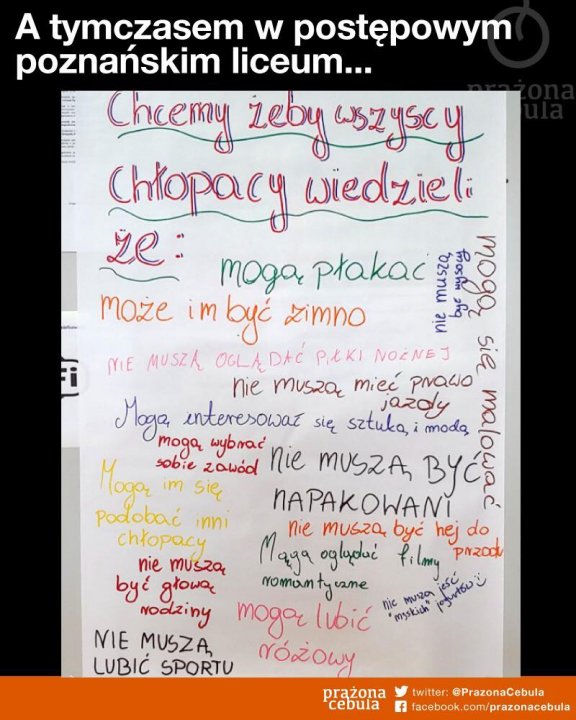 A tymczasem w postępowym
poznańskim liceum...
prażona
cebula
Chcemy żeby wszyscy
Chłopacy wiedzieli
że:
mogą płakać
nie muszą
być wysocy
mogą się malować
może im być zimno
NIE MUSZĄ OGLĄDAĆ PIŁKI NOŻNEJ
nie muszą mieć prawo
jazdy
Mogą interesować się sztuką i modą
mogą wybrać
sobie zawód
nie MUSZĄ BYĆ
NAPAKOWANI
Mogą im się
podobać inni
chłopacy
nie muszą być hej do
przodu
Mągą oglądać filmy
romantyczne
nie muszą
być głową
rodziny
nie muszą jeść
"męskich" jogurtów :)
mogą lubić
różowy
NIE MUSZĄ
LUBIĆ SPORTU
Fi
prażona
cebula
twitter: @PrazonaCebula
facebook.com/prazonacebula